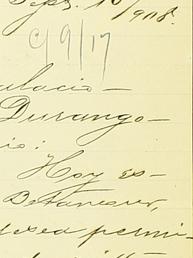 Sept. 10/908.
c/ 9/17
ulacio-
Durango-
io:
Hoy es-
Betancur,
esea permi-